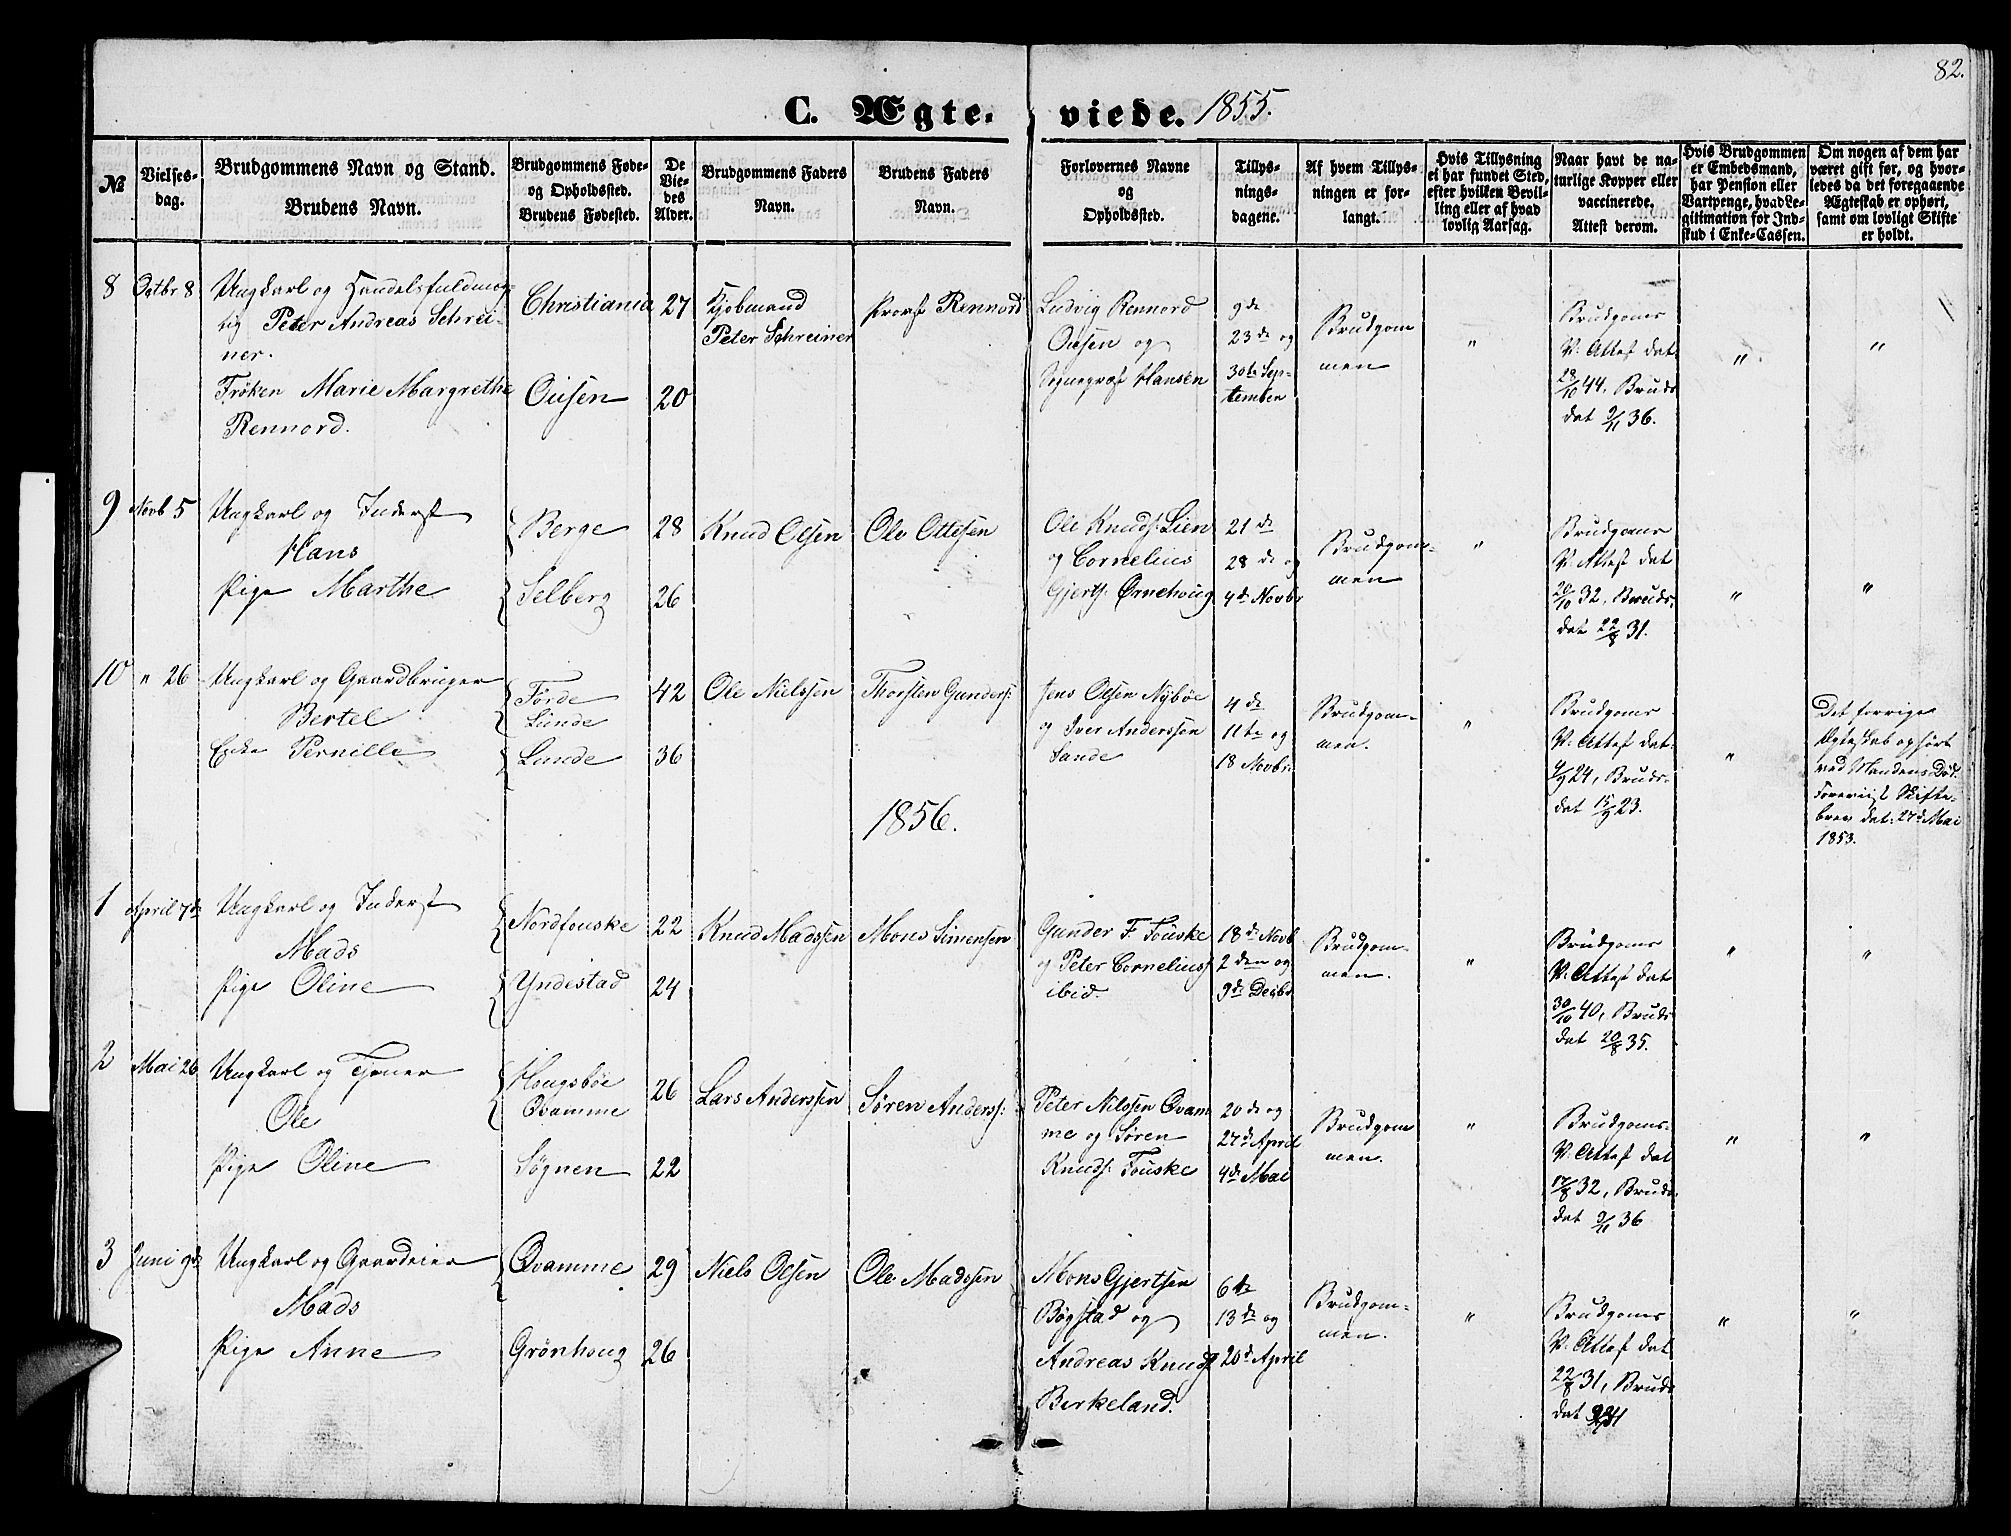 82.
C. Ægte- viede. 1855.
№
Vielses-
dag.
Brudgommens Navn og Stand.
Brudens Navn.
Brudgommens Føde-
og Opholdssted.
Brudens Fødested.
De
Vie-
des
Alder.
Brudgommens Faders
Navn.
Brudens Faders
Navn.
Forlovernes Navne
og
Opholdssted.
Tillys-
nings-
dagene.
Af hvem Tillys-
ningen er for-
langt.
Hvis Tillysning
ei har fundet Sted,
efter hvilken Bevil-
ling eller af hvad
lovlig Aarsag.
Naar havt de na-
turlige Kopper eller
vaccinerede.
Attest derom.
Hvis Brudgommen
er Embedsmand,
har Pension eller
Vartpenge, hvad Le-
gitimation for Ind-
skud i Enke-Cassen.
Om nogen af dem har
været gift før, og hvor-
ledes da det foregaaende
Ægteskab er ophørt,
samt om lovligt Skifte
er holdt.
8
Octbr 8
Ungkarl og Handelsfuldmæg-
tig Peter Andreas Schrei-
ner.
Frøken Marie Margrethe
Rennord.
Christiania
Ousen
27
20
Kjøbmand
Peter Schreiner
Provst Rennord
Ludvig Rennord
Ousen og
Sognepræst Hansen
9de
23de og
30te Sep-
tember
Brudgom
men
"
Brudgoms
V: Attest dat:
28/10 44. Bruds
dat 9/11 36.
"
"
9
Novb 5
Ungkarl og Inderst
Hans
Pige Marthe
Berge
Selberg
28
26
Knud Olsen
Ole Ottesen
Ole Knuds: Lien
og Cornelius
Gjerts: Ørnehoug
21de
28de og
4de Novbr
Brudgom-
men
"
Brudgoms
V: Attest dat
20/10 32. Bruds-
dat 22/8 31.
"
"
10
" 26
Ungkarl og Gaardbruger
Bertel
Enke Pernille
Førde
Lunde
Lunde
42
36
Ole Nielssen
Thorsten Gunders:
Jens Olsen Nybøe
og Iver Anderssen
Sande
4de
11te og
18 Novbr:
Brudgom-
men.
"
Brudgoms
V: Attest dat:
4/9 24, Bruds-
dat 15/9 23.
"
Det forrige
Ægteskab ophørt
ved Mandens Død.
Foreviist Skifte-
brev dat: 27de Mai
1853.
1856.
1
April 7de
Ungkarl og Inderst
Mads
Pige Oline
Nordfouske
Yndestad
22
24
Knud Madssen
Mons Simensen
Gunder F. Fouske
og Peter Corneliuss
ibid.
18de Novb
2den og
9de Decbr
Brudgom-
men.
"
Brudgoms
V: Attest dat
30/10 40, Bruds
dat 20/8 35.
"
"
2
Mai 26
Ungkarl og Tjener
Ole
Pige Oline
Hougsbøe
Qvamme
Søgnen
26
22
Lars Anderssen
Søren Anderss:
Peter Nilssen Qvam
me og Søren
Knuds: Fouske
20de og
27de April
4de Mai
Brudgom
men.
"
Brudgoms-
V: Attest dat
17/8 32, Bruds
dat 9/11 36
"
"
3
Juni 9de
Ungkarl og Gaardeier
Mads
Pige Anne
Qvamme
Grønhoug
29
26
Niels Olsen
Ole Madssen
Mons Gjertsen
Bøgstad og
Andreas Knuds
Birkeland.
6te
13de og
20de April
Brudgom-
men.
"
Brudgoms
V: Attest dat
22/8 31, Bruds
dat
"
"